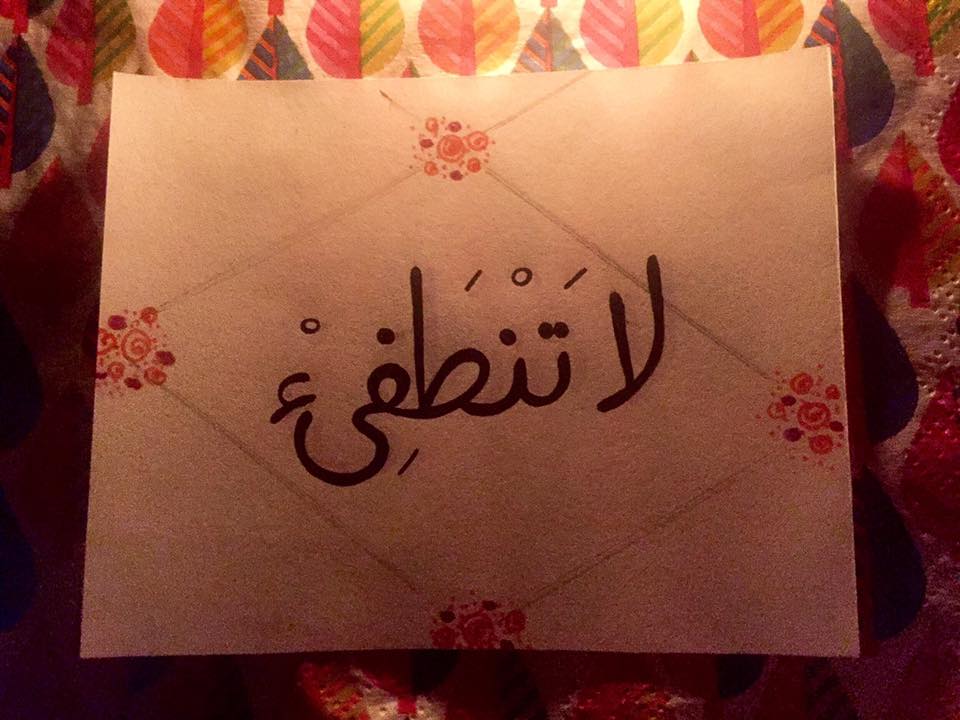 لا تَنْطَفِئْ